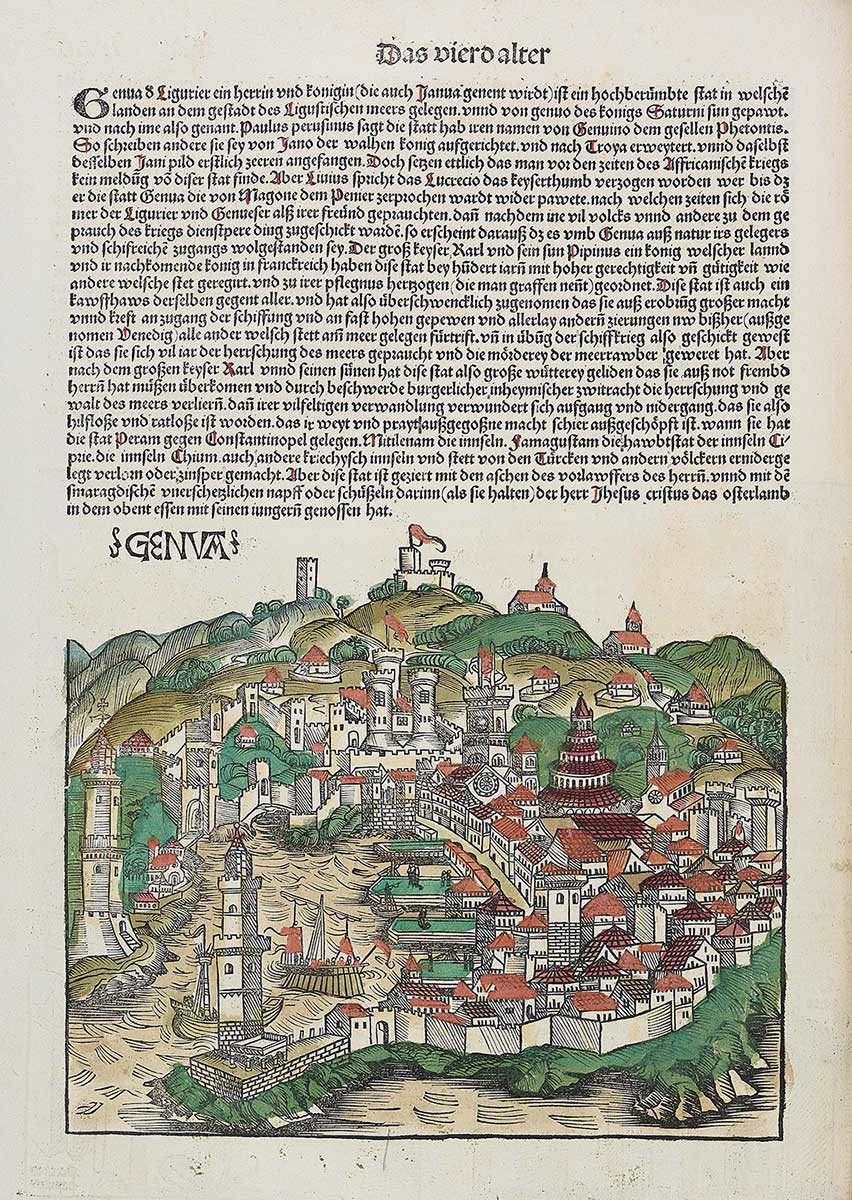 Das vierd alter
Genua d̕ Ligurier ein herrin vnd konigin (die auch Janua genent wirdt) ist ein hochberümbte stat in welschē
landen an dem gestadt des Ligustischen meers gelegen. vnnd von genuo des konigs Saturni sun gepawt.
vnd nach ime also genant. Paulus perusinus sagt die statt hab iren namen von Genuino dem gesellen Phetontis.
So schreiben andere sie sey von Jano der walhen konig aufgerichtet. vnd nach Troya erweytert. vnnd daselbst
desselben Jani pild erstlich zeeren angefangen. Doch setzen ettlich das man vor den zeiten des Affricanischē kriegs
kein meldūg vō diser stat finde. Aber Liuius spricht das Lucrecio das keyserthumb verzogen worden wer bis dz
er die statt Genua die von Magone dem Penier zerprochen wardt wider pawete. nach welchen zeiten sich die rö
mer der Ligurier vnd Genueser alß irer freünd geprauchten. dañ nachdem ine vil volcks vnnd andere zu dem ge
prauch des kriegs dienstpere ding zugeschickt wardē. so erscheint darauß dz es vmb Genua auß natur irs gelegers
vnd schifreichē zugangs wolgestanden sey. Der groß keyser Karl vnd sein sun Pipinus ein konig welscher lannd
vnd ir nachkomende konig in franckreich haben dise stat bey hūdert iarñ mit hoher gerechtigkeit vñ gütigkeit wie
andere welsche stet geregirt. vnd zu irer pflegnus hertzogen (die man graffen neñt) geordnet. Dise stat ist auch ein
kawffhaws derselben gegent aller. vnd hat also überschwencklich zugenomen das sie auß erobrūg großer macht
vnnd kreft an zugang der schiffung vnd an fast hohen gepewen vnd allerlay anderñ zierungen nw bißher (außge
nomen Venedig) alle ander welsch stett am meer gelegen fürtrift. vñ in übūg der schiffkrieg also geschickt gewest
ist das sie sich vil iar der herrschung des meers gepraucht vnd die mörderey der meerrawber geweret hat. Aber
nach dem großen keyser Karl vnnd seinen sünen hat dise stat also große wütterey geliden das sie auß not frembd
herrñ hat müßen überkomen vnd durch beschwerde burgerlicher inheymischer zwitracht die herrschung vnd ge
walt des meers verlierñ. dañ irer vilfeltigen verwandlung verwundert sich aufgang vnd nidergang. das sie also
hilfloße vnd ratloße ist worden. das ir weyt vnd prayt außgegoßne macht schier außgeschöpft ist. wann sie hat
die stat Peram gegen Constantinopel gelegen. Mitilenam die innseln. Famagustam die hawbtstat der innseln Ci
prie. die innseln Chium. auch andere kriechysch innseln vnd stett von den Türcken vnd andern völckern ernideerge
legt verlorn oder zinsper gemacht. Aber dise stat ist geziert mit den aschen des vorlawffers des herrñ. vnnd mit dē
smaragdischē vnerschetzlichen napff oder schüßeln darinn (als sie halten) der herr Jhesus cristus das osterlamb
in dem obent essen mit seinen iungerñ genossen hat.
GENVA